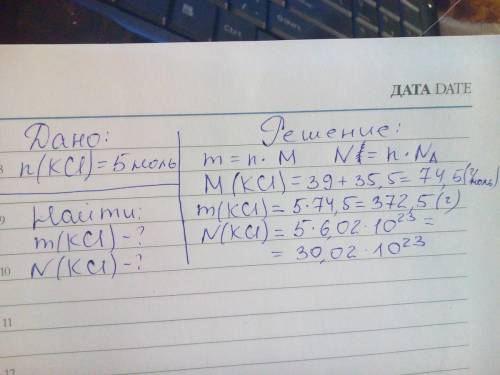 ДАТА DATE
Дано:
n(KCl)=5 моль
Найти:
m(KCl)-?
N(KCl)-?
Решение:
m=n·M N=n·NA
M(KCl)=39+35,5=74,5(г/моль)
m(KCl)=5·74,5=372,5(г)
N(KCl)=5·6,02·10²³=
=30,02·10²³
8
9
10
11
12